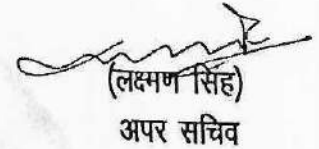 (लक्ष्मण सिंह)
अपर सचिव